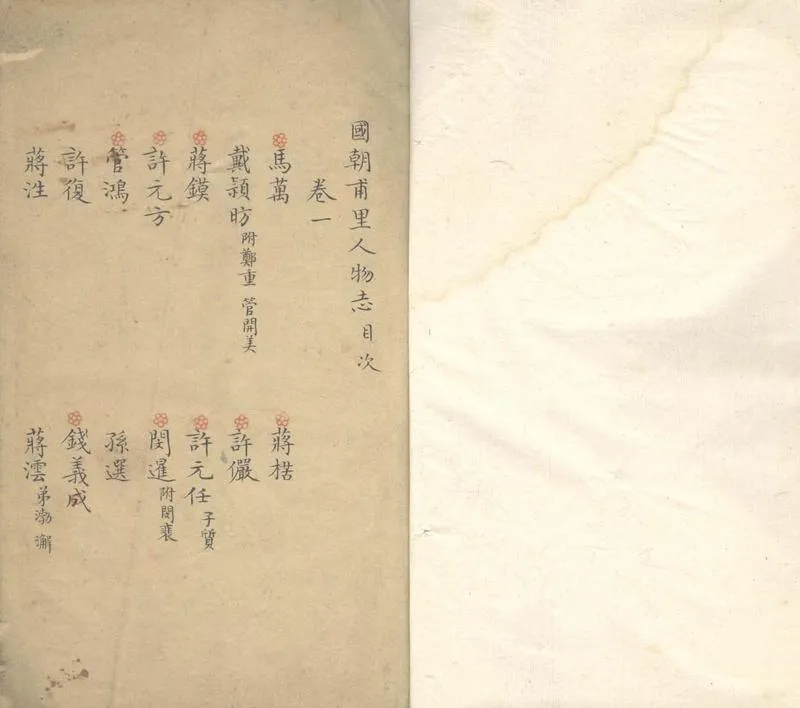 國朝甫里人物志目次
卷一
馬萬 蔣楛
戴潁昉 附鄭重 管開美 許儼
蔣鏌 許元任 子質
許元方 閔暹 附閔裴
管鴻 孫選
許復 錢義成
蔣泩 蔣澐 弟渤 澥